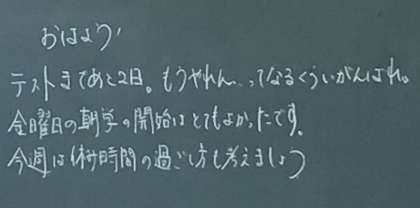 おはよう！
テストまであと2日。もうやれん…ってなるくらいがんばれ。
金曜日の朝学の開始はとてもよかったです。
今週は休み時間の過ごし方も考えましょう